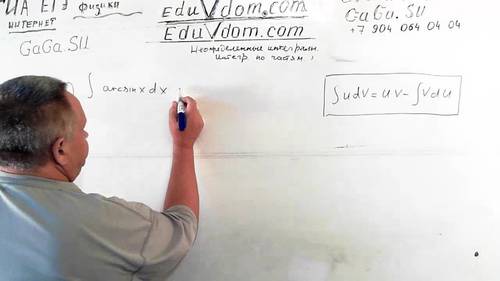 ИНТЕРНЕТ
физики
GaGa.SU
EduVdom.com
EduVdom.com
Неопределенные интегралы.
Интегр по частям
GaGa.SU
+7 904 064 04 04
∫ arcsinx dx
∫udV=uV-∫Vdu